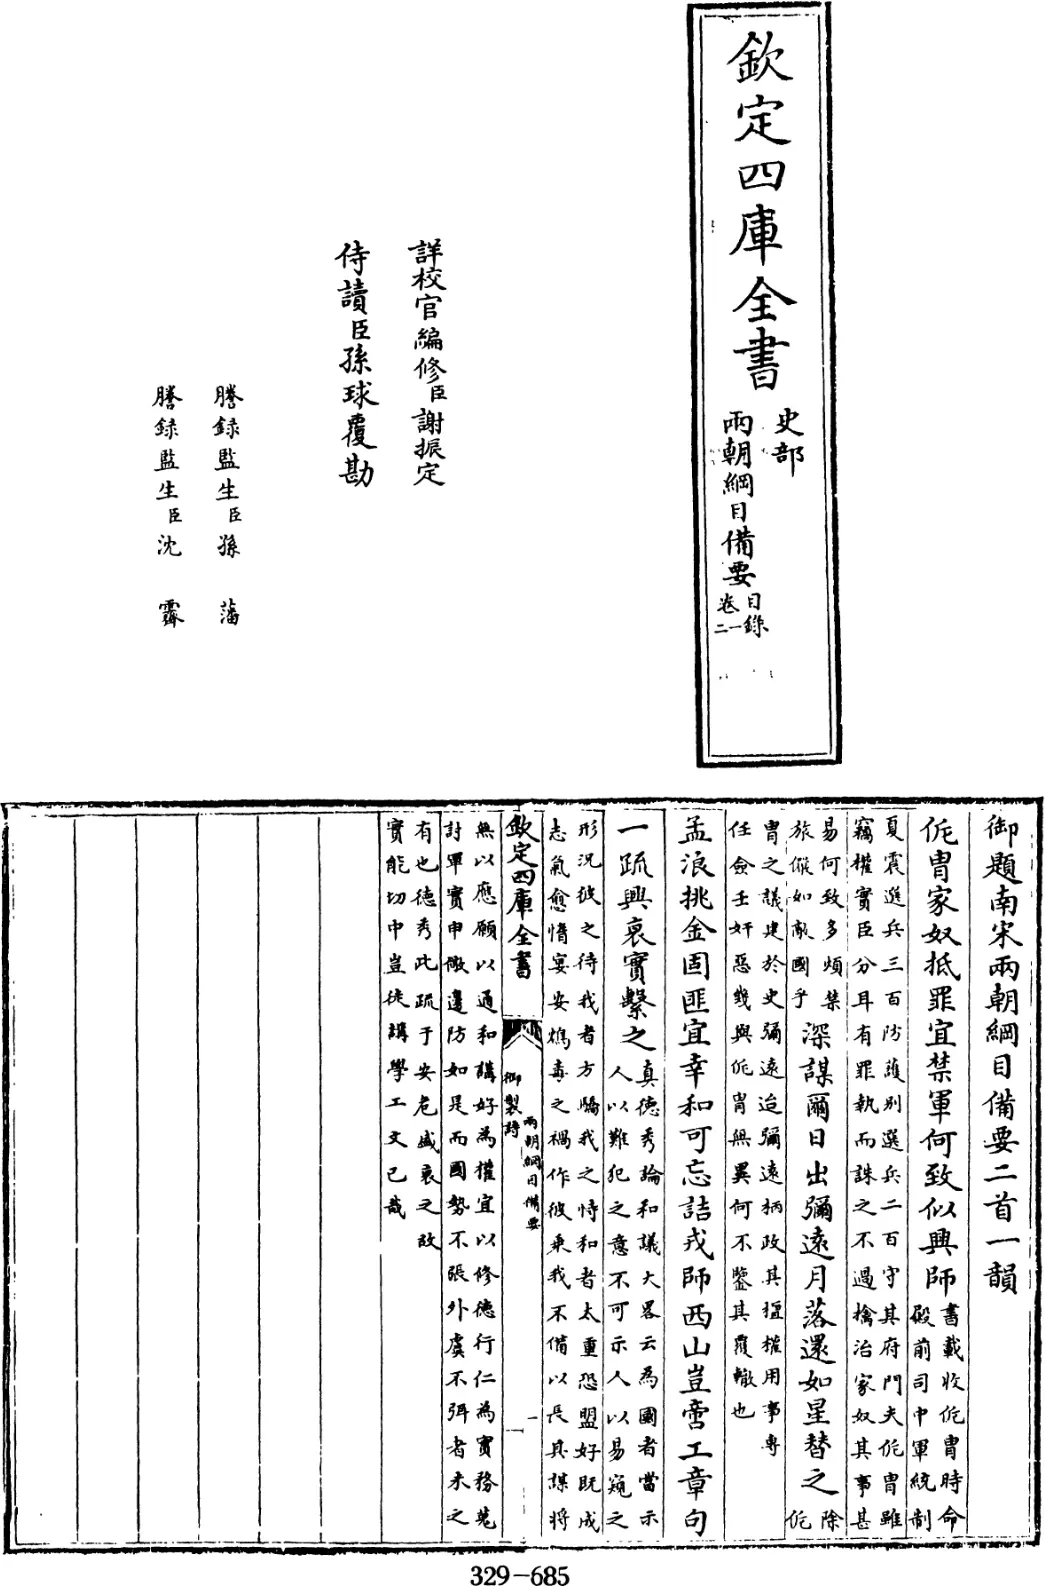 欽定四庫全書
史部
兩朝綱目備要
目錄
卷一
二
詳校官編修臣謝振定
侍讀臣孫球覆勘
謄錄監生臣孫藩
謄錄監生臣沈
御題南宋兩朝綱目備要二首一韻
侂冑家奴抵罪宜禁軍何致似興師
書載收侂冑時命
殿前司中軍統制
夏震選兵三百防護別選兵二百守其府門夫侂冑雖
竊權實臣分耳有罪執而誅之不過擒治家奴其事甚
易何致多煩禁
旅儼如敵國乎
深謀爾日出彌遠月落還如星替之
除
侂
冑之議建於史彌遠迨彌遠柄政其擅權用事專
任僉壬奸惡幾與侂冑無異何不鑒其覆轍也
孟浪挑金固匪宜幸和可忘詰戎師西山豈啻工章句
一疏興衰實繫之
真德秀論和議大畧云為國者當示
人以難犯之意不可示人以易窺之
形況彼之待我者方驕我之恃和者太重恐盟好既成
志氣愈惰宴安鴆毒之禍作彼乘我不備以長其謀將
欽定四庫全書
御製詩
兩朝綱目備要
一
無以應願以通和講好為權宜以修德行仁為實務蒐
討軍實申儆邊防如是而國勢不張外虞不弭者未之
有也德秀此疏于安危盛衰之故
實能切中豈徒講學工文已哉
329-685